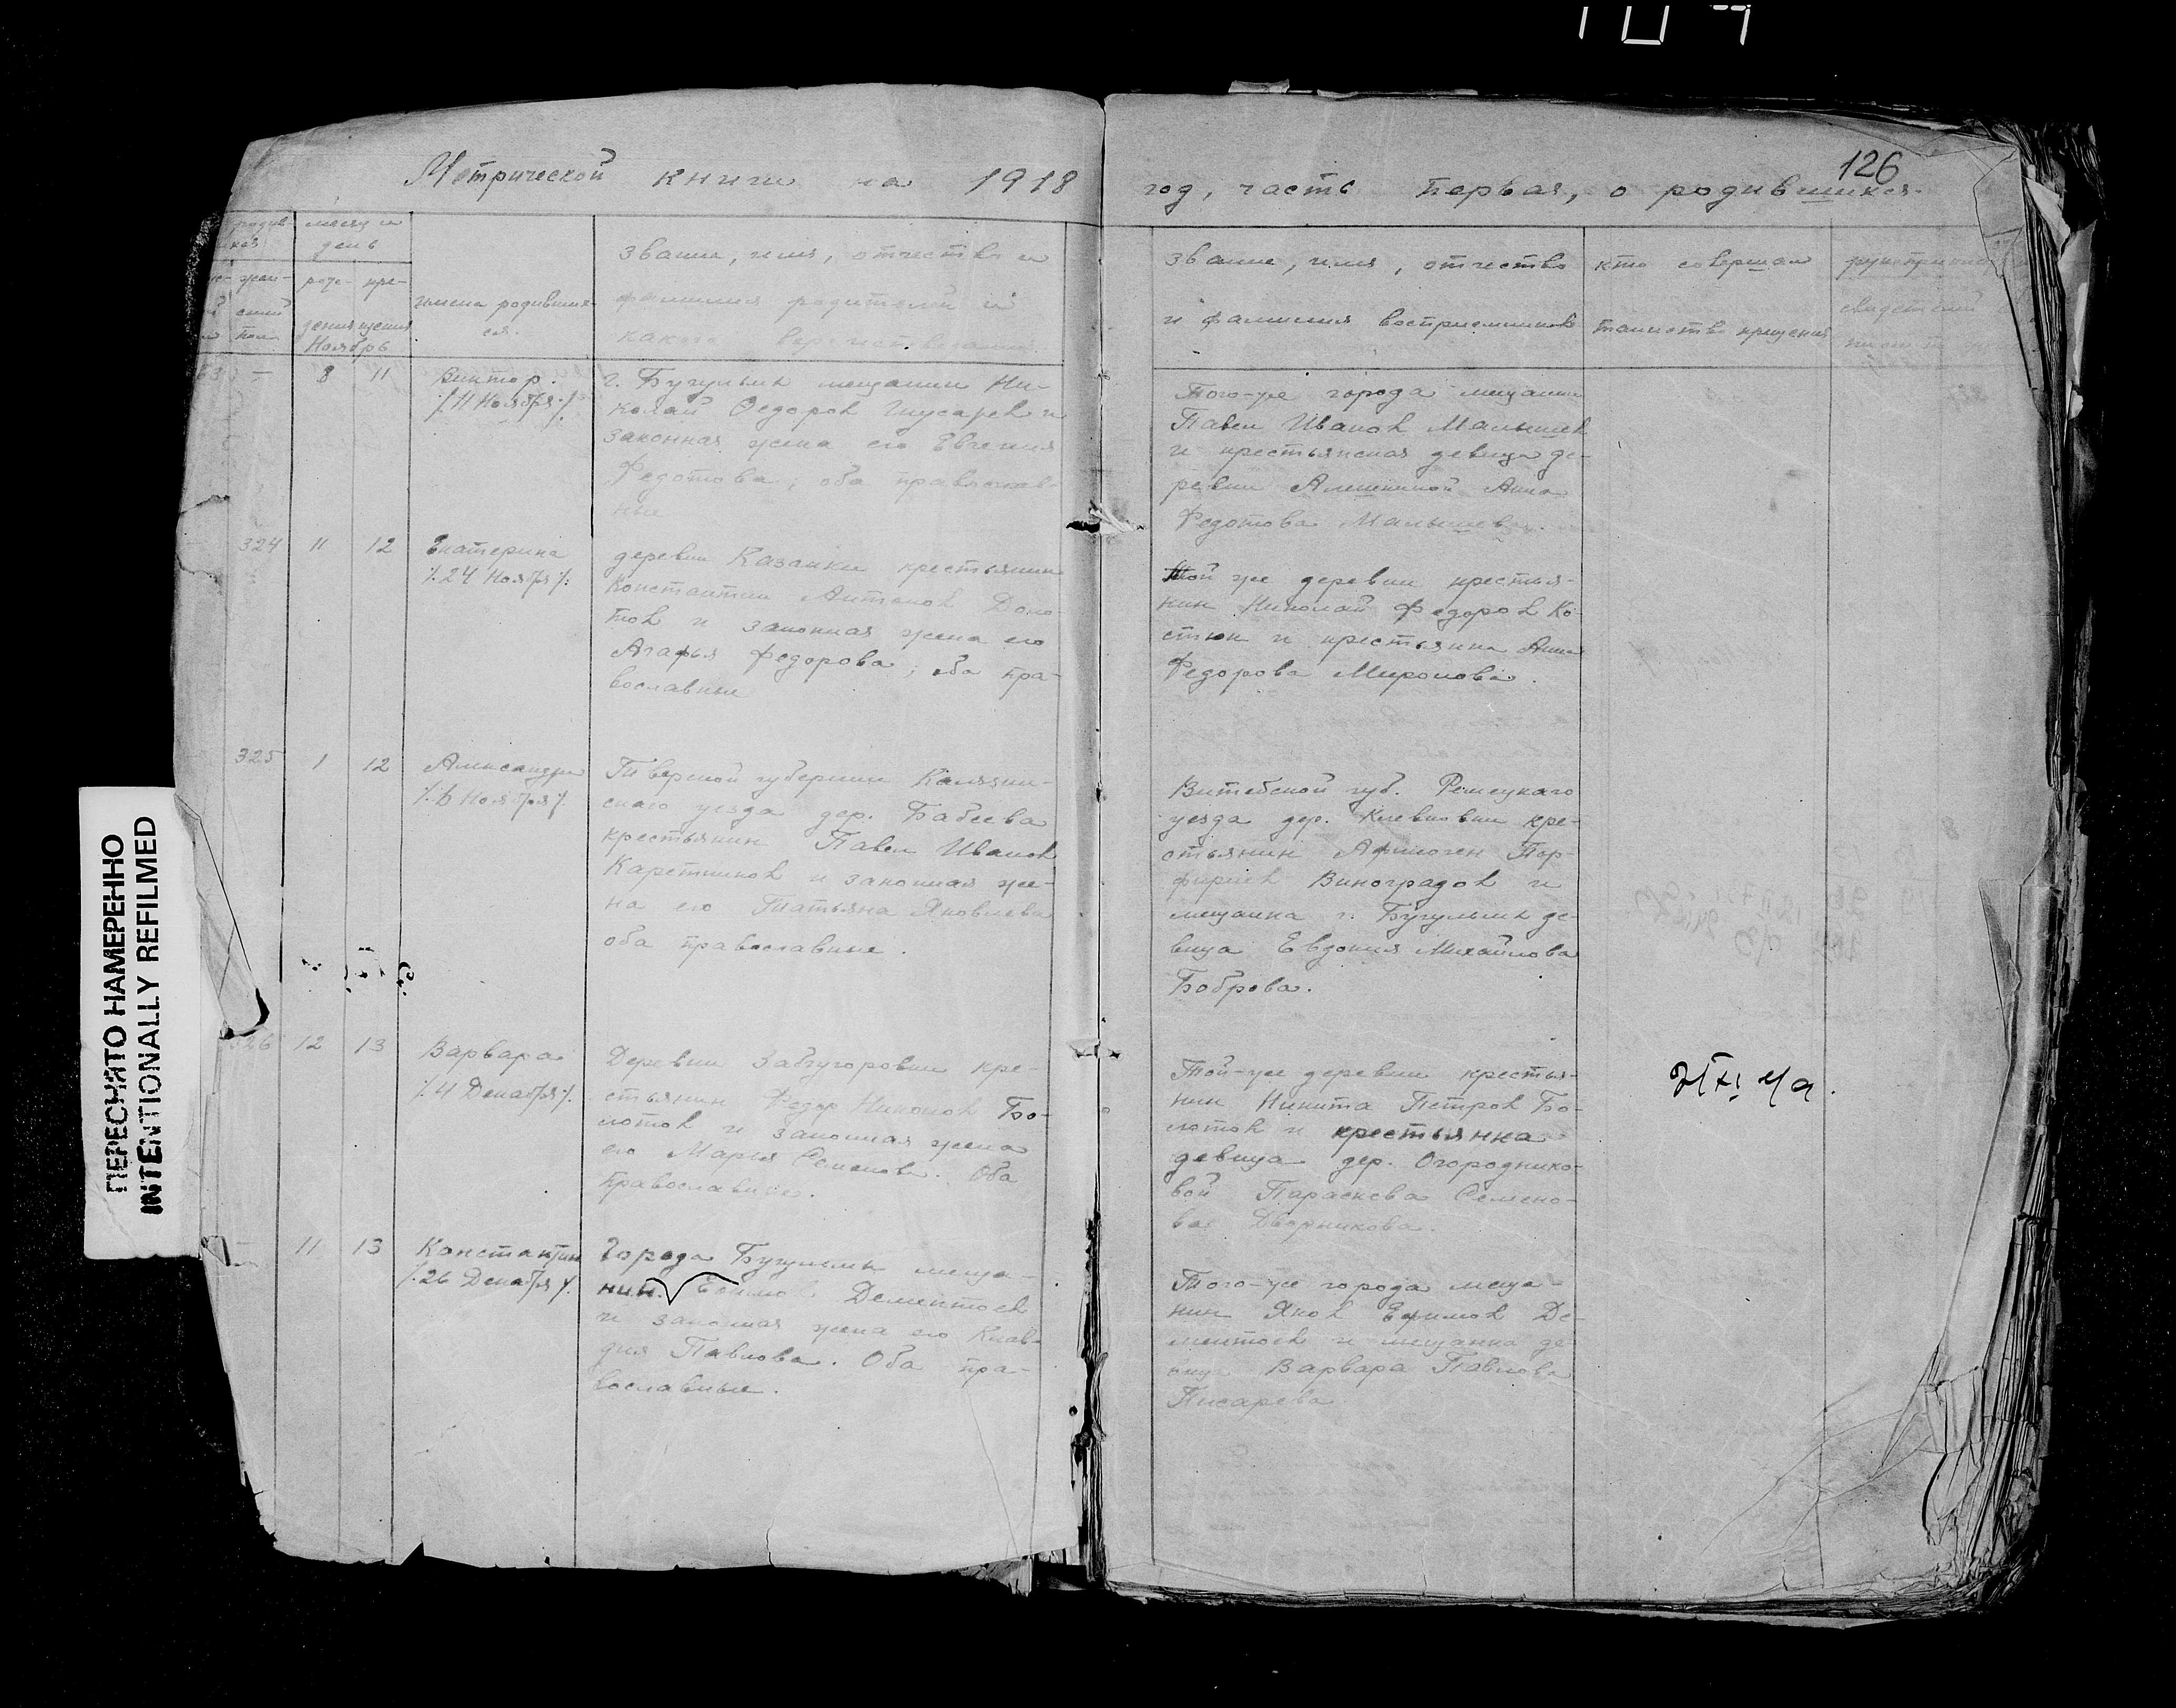 126
Метрической книги на 1918 год, часть первая, о родившихся.
месяц и
день
звание, имя, отчество и
фамилия родителей и
какого вероисповедания
имена родивших-
ся.
Ноябрь
звание, имя, отчество
и фамилия восприемников
кто совершал
таинство крещения
63 — 8 11
Виктор.
/.11 Ноября./
г. Бугульмы мещанин Ни-
колай Федоров и
законная жена его Евгения
Федотова; оба православ-
ные
Того-же города мещанин
Павел Иванов Малышев
и крестьянская девица де-
ревни Анна
Федотова Малышева.
324 11 12
Екатерина
/.24 Ноября./
деревни Казанки крестьянин
Константин Антонов Доло-
тов и законная жена его
Агафья Федорова; оба пра-
вославные
Той же деревни крестья-
нин Николай Федоров Ко-
стюк и крестьянка Анна
Федорова Миронова.
325 1 12
Александра
/.6 Ноября./
Тверской губернии Калязин-
скаго уезда дер. Бабеева
крестьянин Павел Иванов
Каретников и законная же-
на его Татьяна Яковлева
оба православные.
Витебской губ. Режецкаго
уезда дер. кре-
стьянин Афиноген Пор-
фирьев Виноградов и
мещанка г. Бугульмы де-
вица Евдокия Михайлова
Боброва.
326 12 13
Варвара
/.4 Декабря./
Деревни Забугоровки кре-
стьянин Федор Никонов Бо-
лотов и законная жена
его Марья Семенова. Оба
православные.
Той-же деревни крестья-
нин Никита Петров Бо-
лотов и крестьянка
девица дер. Огороднико-
вой Параскева Семено-
ва Дворникова.
— 11 13
Константин
/.26 Декабря./
Города Бугульмы меща-
нин Ефимов Дементьев
и законная жена его Клав-
дия Павлова. Оба пра-
вославные.
Того-же города меща-
нин Яков Ефимов Де-
ментьев и мещанка де-
вица Варвара Павлова
Писарева
ПЕРЕСНЯТО НАМЕРЕННО
INTENTIONALLY REFILMED